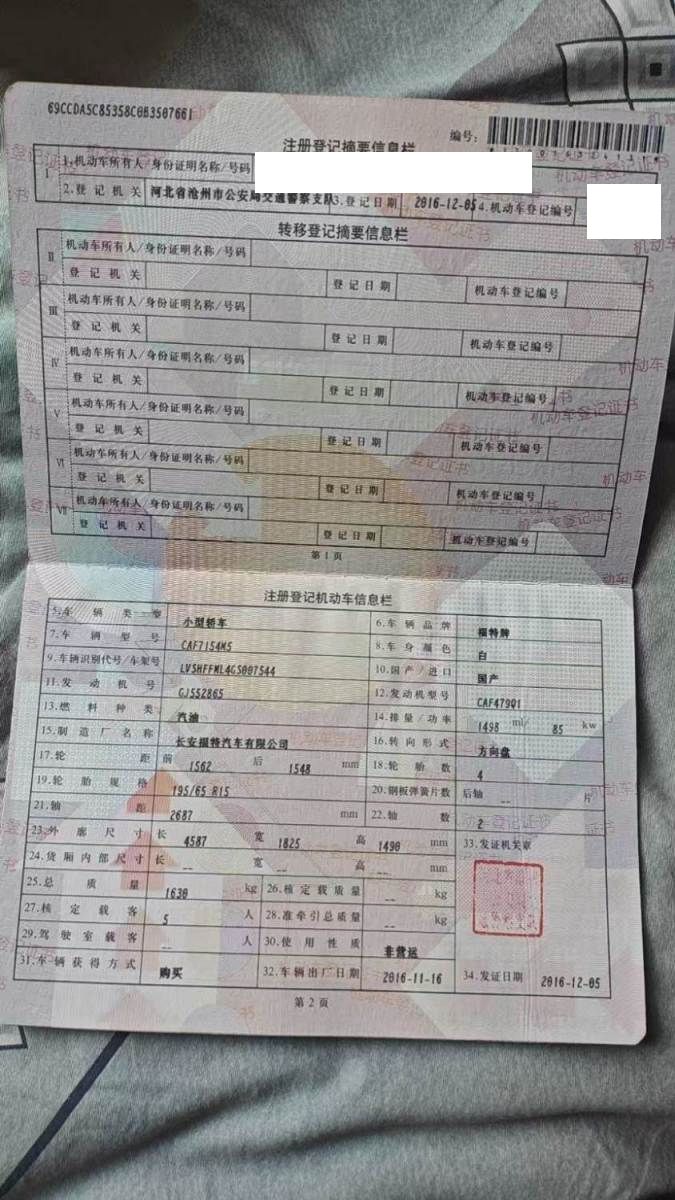 69CCDA5C85358C0B3507661
编号:
注册登记摘要信息栏
I 1.机动车所有人/身份证明名称/号码
2.登记机关 河北省沧州市公安局交通警察支队 3.登记日期 2016-12-05 4.机动车登记编号
转移登记摘要信息栏
II 机动车所有人/身份证明名称/号码
登记机关 登记日期 机动车登记编号
III 机动车所有人/身份证明名称/号码
登记机关 登记日期 机动车登记编号
IV 机动车所有人/身份证明名称/号码
登记机关 登记日期 机动车登记编号
V 机动车所有人/身份证明名称/号码
登记机关 登记日期 机动车登记编号
VI 机动车所有人/身份证明名称/号码
登记机关 登记日期 机动车登记编号
VII 机动车所有人/身份证明名称/号码
登记机关 登记日期 机动车登记编号
第1页
注册登记机动车信息栏
5.车辆类型 小型轿车 6.车辆品牌 福特牌
7.车辆型号 CAF7154M5 8.车身颜色 白
9.车辆识别代号/车架号 LVSHFFML4GS007544 10.国产/进口 国产
11.发动机号 GJ552865 12.发动机型号 CAF479Q1
13.燃料种类 汽油 14.排量/功率 1498 ml/ 85 kw
15.制造厂名称 长安福特汽车有限公司 16.转向形式 方向盘
17.轮距 前 1562 后 1548 mm 18.轮胎数 4
19.轮胎规格 195/65 R15 20.钢板弹簧片数 后轴 -- 片
21.轴距 2687 mm 22.轴数 2
23.外廓尺寸 长 4587 宽 1825 高 1490 mm 33.发证机关章
24.货厢内部尺寸 长 -- 宽 -- 高 -- mm
25.总质量 1630 kg 26.核定载质量 -- kg
27.核定载客 5 人 28.准牵引总质量 -- kg
29.驾驶室载客 -- 人 30.使用性质 非营运
31.车辆获得方式 购买 32.车辆出厂日期 2016-11-16 34.发证日期 2016-12-05
第2页